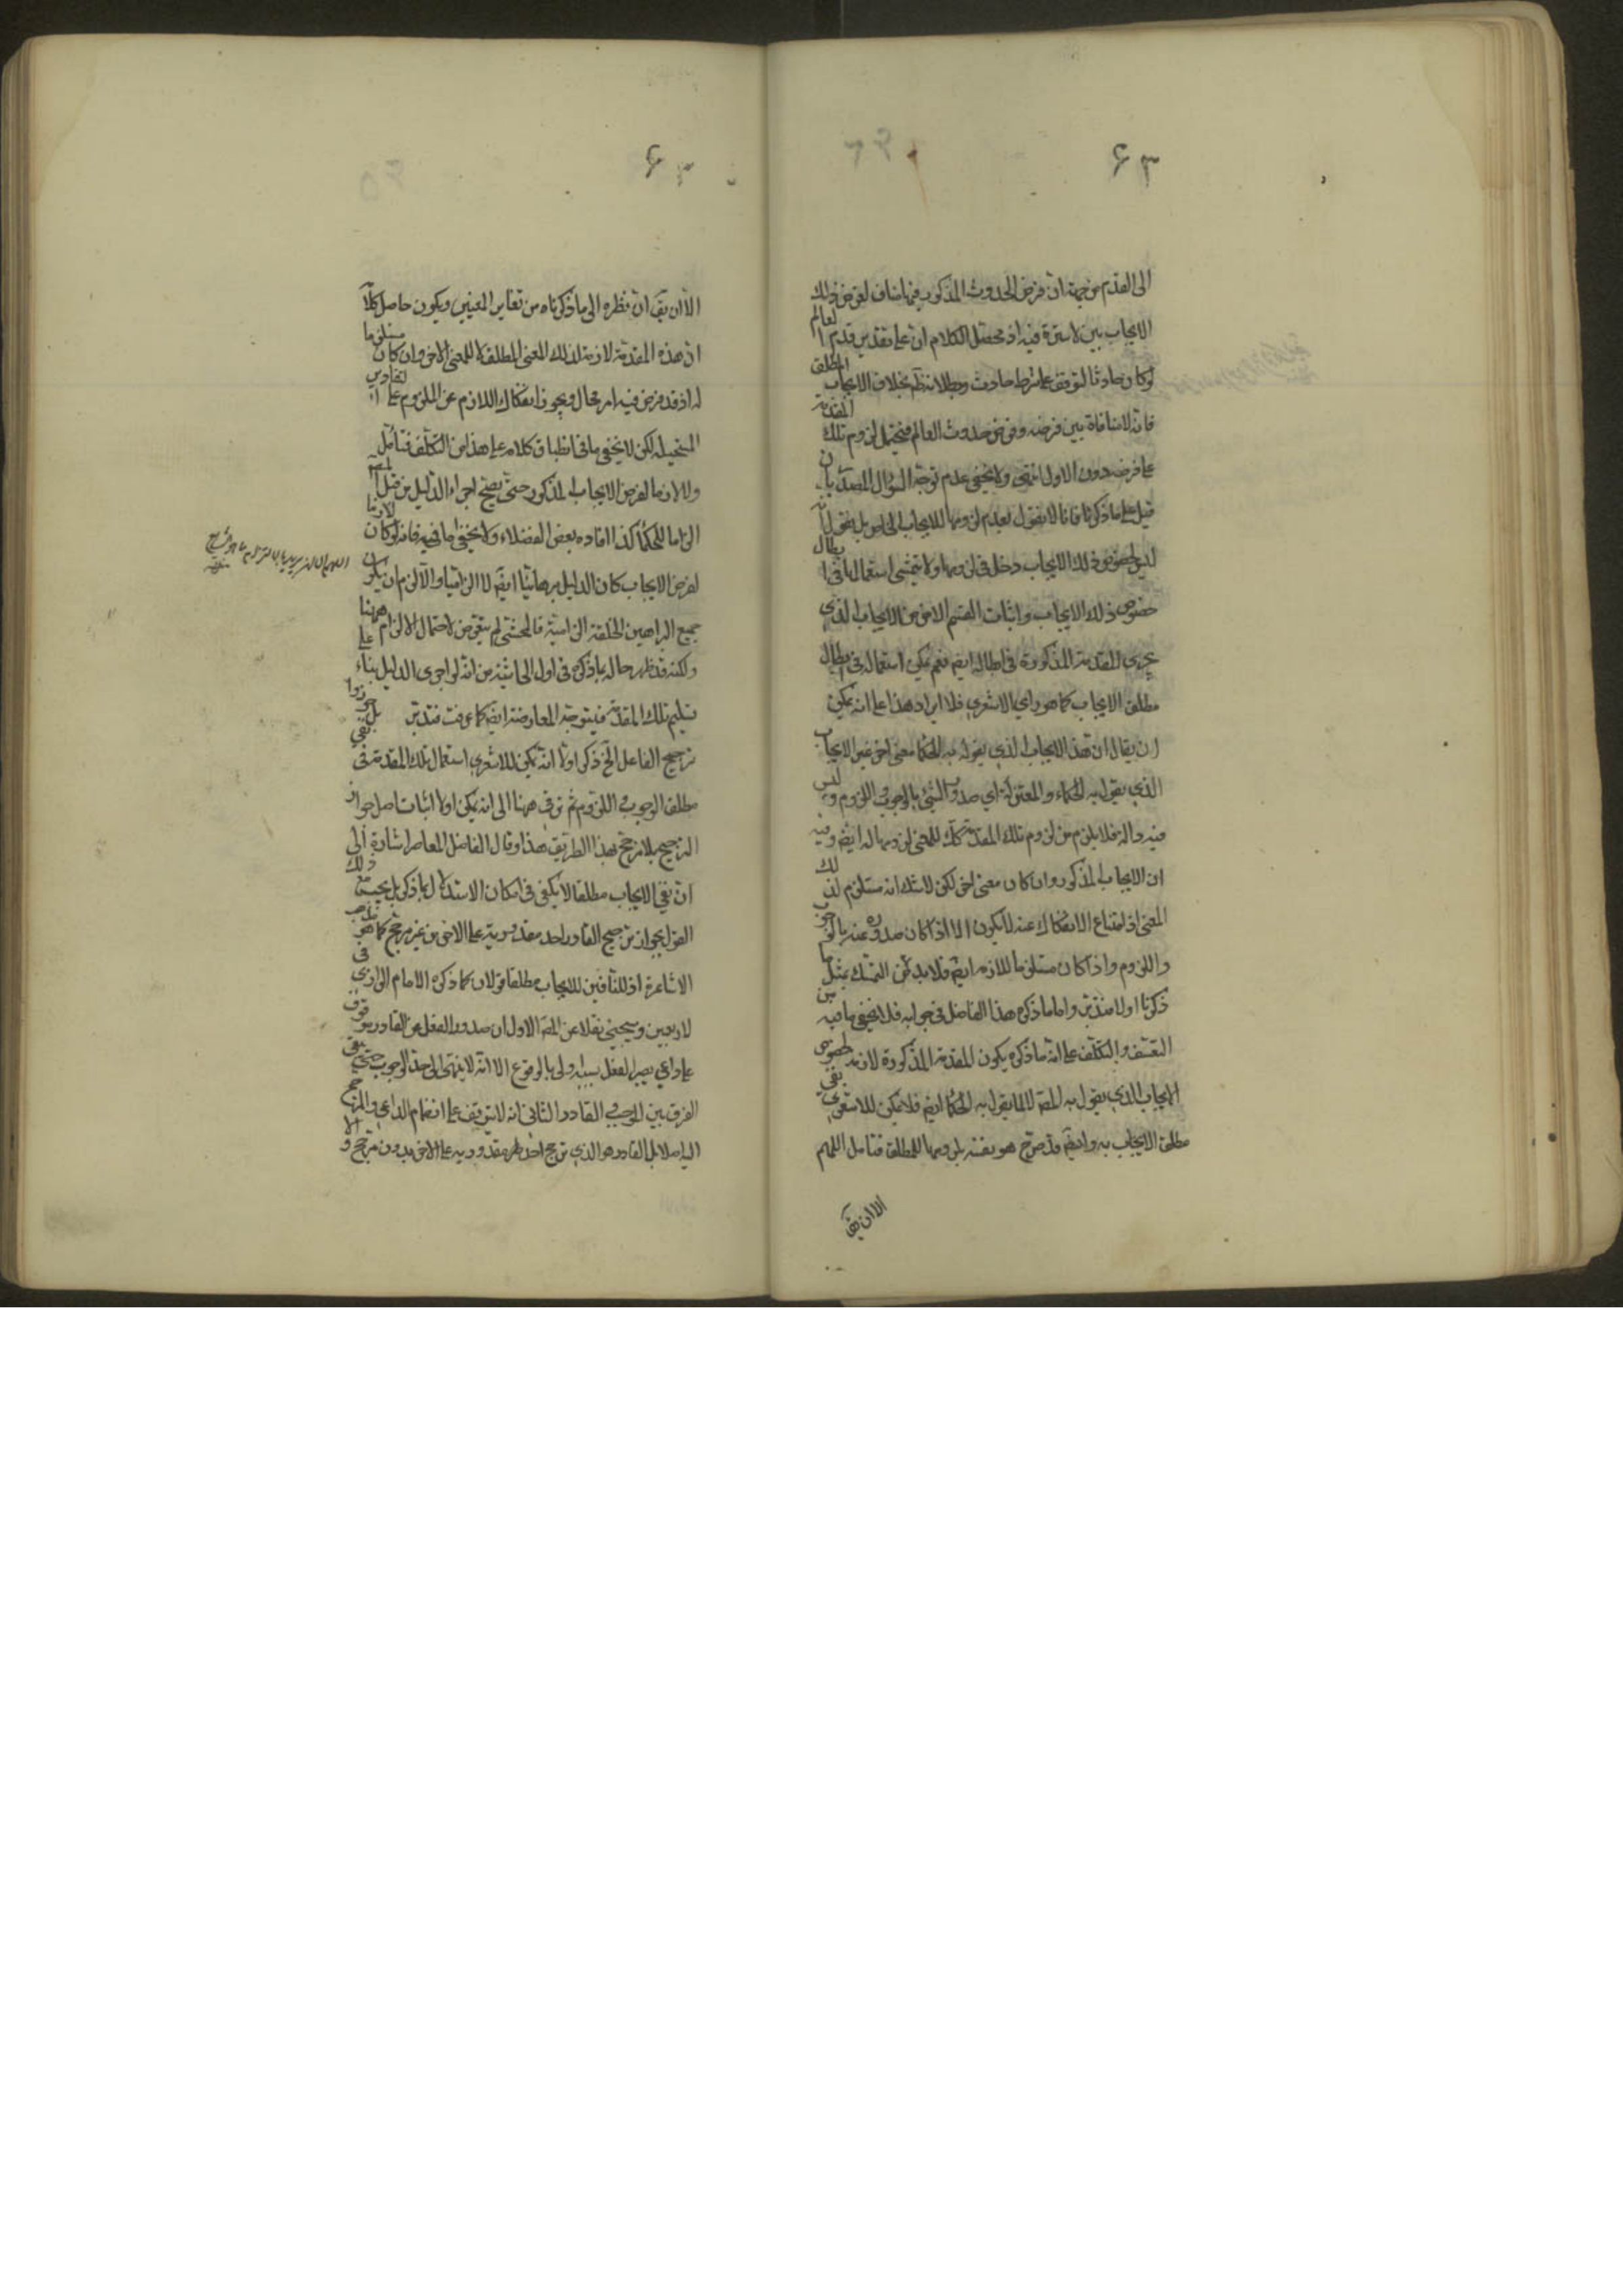 ۶۳
الى القدم من جهة ان فرض الحدوث المذكور فيما ضاف لفرض ذلك
الايجاب بين لا سترة فيه اذ محصّل الكلام ان على تقدير قدم العالم
لو كان حادثا لتوقف على شرط حادث والا لانتظم بخلاف الايجاب المطلق
فانه لا منافاة بين فرضه وفرض حدوث العالم فيحتمل لزوم تلك المقدمة
على فرضه دون الاول انتهى ولا يخفى عدم توجّه السؤال المصدّر بان
قيل على ما ذكرنا فانا لا نقول بعدم لزومها للايجاب الخاص بل نقول انه
ليس لخصوص ذلك الايجاب دخل في لزومها ولا يتمشى استعمالها في ابطال
خصوص ذلك الايجاب واثبات القسم الاخر من الايجاب الذي
يجرى المقدمة المذكورة في ابطاله ايضا نعم يمكن استعماله في ابطال
مطلق الايجاب كما هو راي الاشعري فلا ايراد هذا على انه يمكن
ان يقال ان هذا الايجاب الذي يقول به الحكما معنى اخر غير الايجاب
الذي يقول به الحكماء والمعتزلة اي صدور الشئ بالوجوب واللزوم وليس
فيه والا فلا يلزم من لزوم تلك المقدمة كك للمعنى لزومها له ايضا وفيه
ان الايجاب المذكور وان كان معنى اخر لكن لا شك انه مستلزم لذلك
المعنى اذ امتناع الانفكاك عنه لا يكون الا اذا كان صدوره عنه بالوجوب
واللزوم واذا كان مستلزما للازمه ايضا فلا بد من التمسك بمثل ما
ذكرنا اولا فتدبر واما ما ذكره هذا الفاضل في جوابه فلا يخفى ما فيه من
التعسّف والتكلّف على انه ما ذكره يكون المقدمة المذكورة لازمة لخصوص
الايجاب الذي يقول به المص لا لما يقول به الحكما ايضا فلا يمكن للاشعري نفي
مطلق الايجاب به وايضا قد صرّح هو بنفسه بلزومها للمطلق فتامل اللهم
الا ان يق
۶
الا ان يق ان نظره الى ما ذكرناه من تغاير المعنيين ويكون حاصل كلامه
ان هذه المقدمة لازمة لذلك المعنى المطلق لا للمعنى الاخر وان كان مستلزما
له اذ قد فرض فيه امر محال ويجوز انفكاك اللازم عن الملزوم على التقادير
المستحيلة لكن لا يخفى ما في انطباق كلامه على هذا من التكلّف فتامّل
ولا لازما لفرض الايجاب المذكور حتى يصحّ اجراء الدليل من قبل المص
الزاما للحكما كذا افاده بعض الفضلاء ولا يخفى ما فيه فانه لو كان لازما
لفرض الايجاب كان الدليل برهانيا ايضا لا الزاميا والا لزم ان يكون
جميع البراهين الخلقية الزامية فالمحشى لم يتعرض لاحتمال الالزام ههنا
ولكنه قد ظهر حاله بما ذكره في اول الحاشية من انه لو اجرى الدليل بناء على
تسليم تلك المقدمة فيتوجّه المعارضة ايضا كما عرفت فتدبّر بل جوزوا
ترجيح الفاعل الخ ذكر اولا انه يمكن للاشعري استعمال تلك المقدمة في نفي
مطلق الوجوب واللزوم ثم ترقى ههنا الى انه يمكن اولا اثبات اصل جواز
الترجيح بلا مرجّح بهذا الطريق هذا وقال الفاضل المعاصر اشارة الى
ان نفي الايجاب مطلقا لا يكفي في امكان الاستدلال بما ذكر بل يجب مع ذلك
القول بجواز ترجيح القادر احد مقدوريه على الاخر من غير مرجح كما هو مذهب
الاشاعرة اذ للنافين للايجاب مطلقا قولان كما ذكره الامام الرازي في
لاربعين وسيجئ نقلا عن المص الاول ان صدور الفعل عن القادر موقوف
على داعي يصير الفعل بسببه اولى بالوقوع الا انه لا ينتهى الى حد الوجوب حتى يبقى
الفرق بين الموجب والقادر الثاني انه لا يتوقف على انضمام الداعي والمرجح
اليه اصلا بل القادر هو الذي ترجح احد طرفي مقدوريه على الاخر بدون مرجح و الا